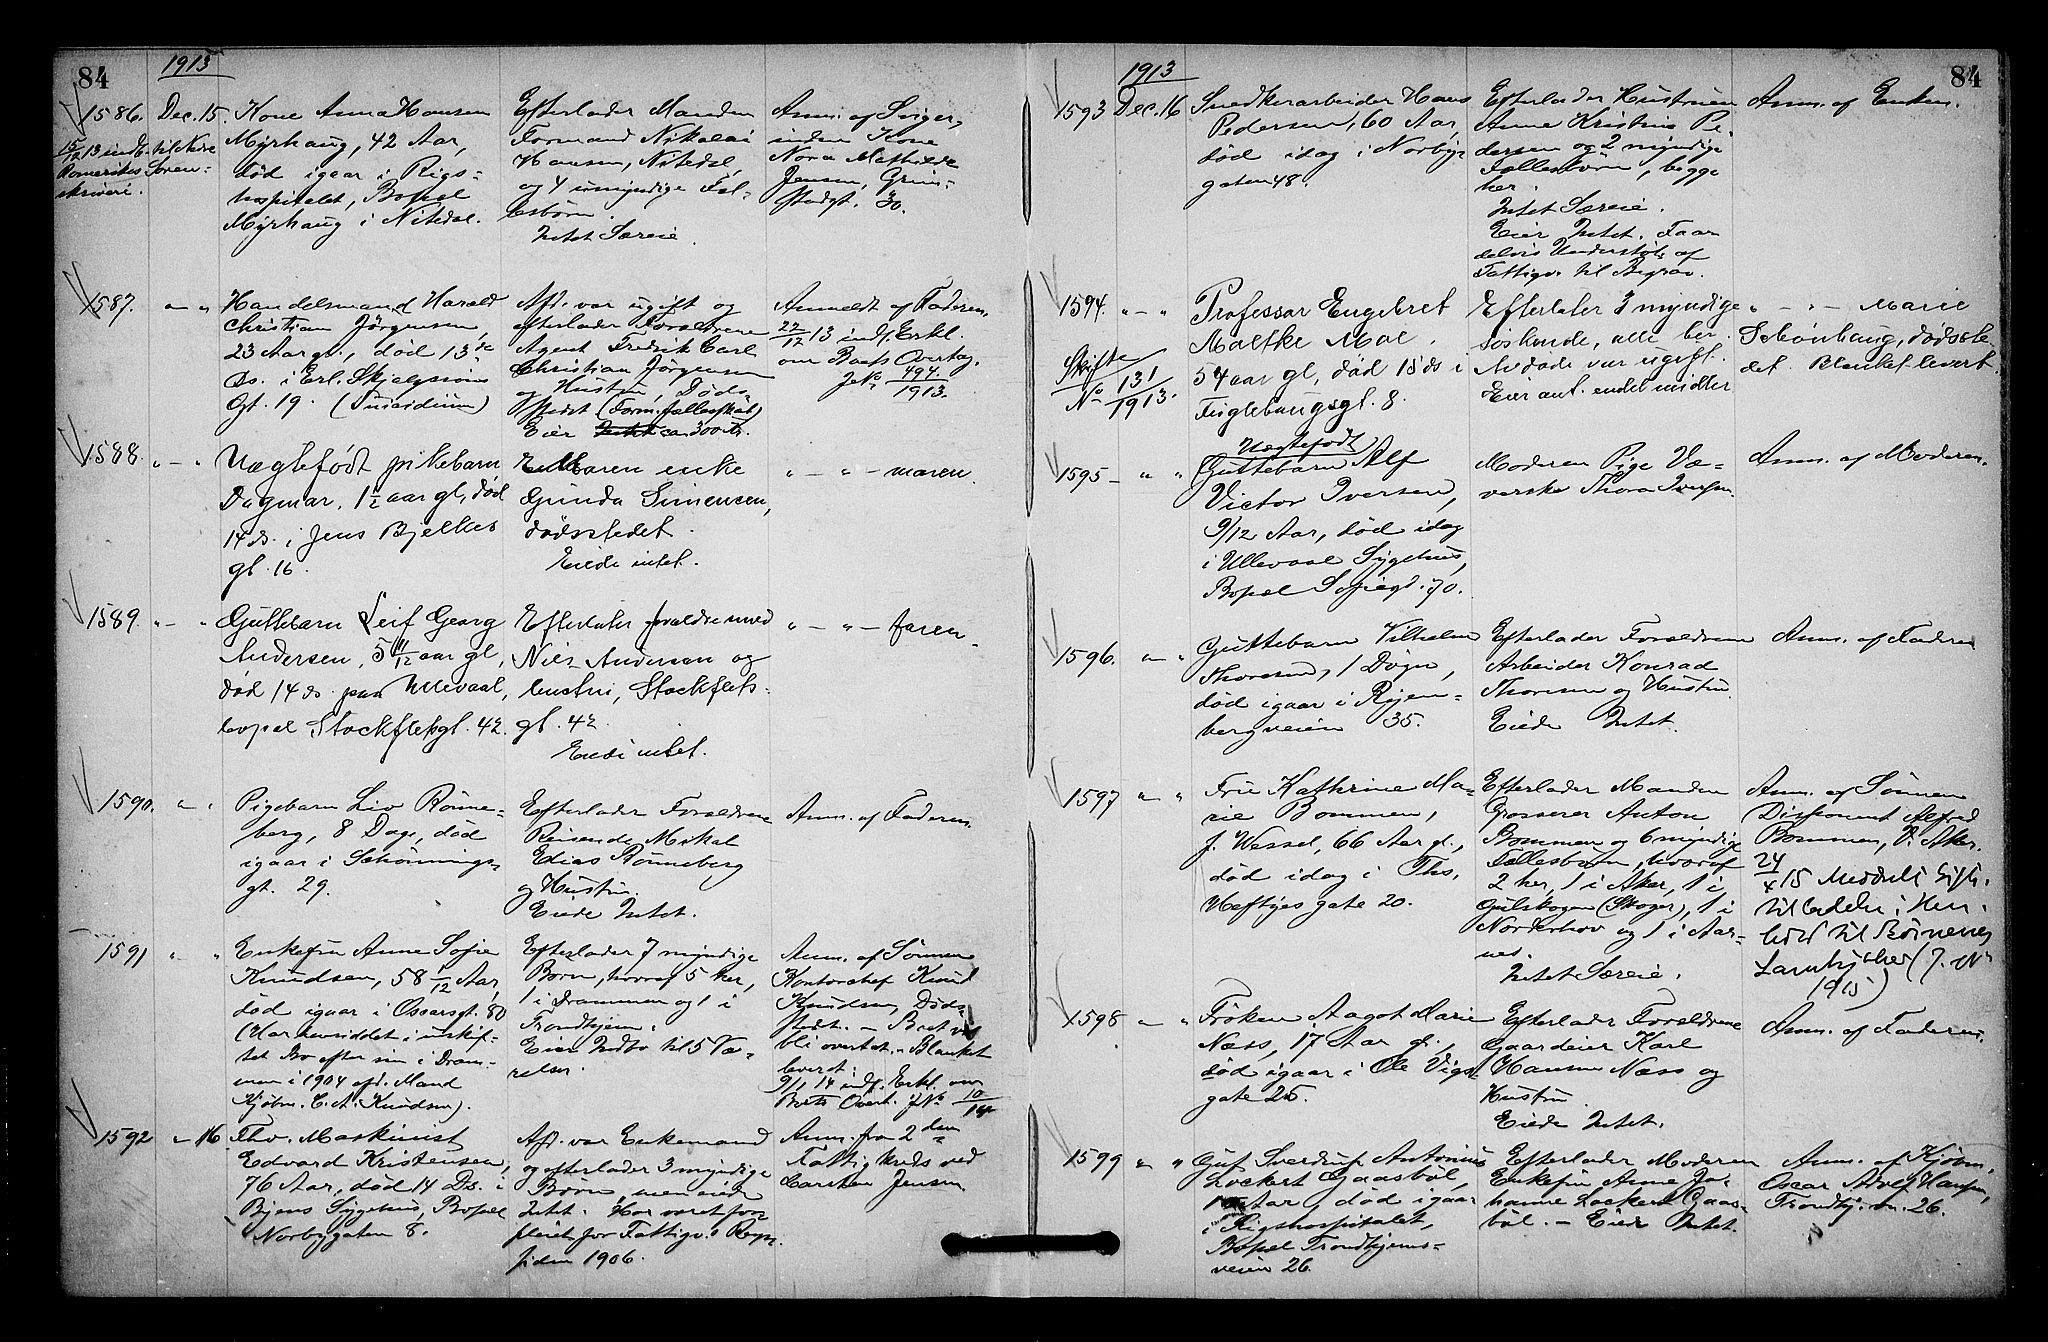 84
1913
1586. Dec. 15.
15/12 13 indb. til Nedre
Romerikes Soren-
skriveri.
Kone Anna Hansen
Myrhaug, 42 Aar,
død igaar i Rigs-
hospitalet, Bopæl
Myrhaug i Nitedal.
Efterlader Manden
Formand Nikolai
Hansen, Nitedal,
og 4 umyndige Fæl-
lesbørn.
Intet Særeie.
Anm. af Sviger-
inden Kone
Nora Mathilde
Jensen, Grim-
stadgt. 30.
1587. " "
Handelsmand Harald
Christian Jörgensen,
23 Aar gl., død 13de
ds. i Erl. Skjalgssöns
Gt. 19. (Suicidium)
Afd. var ugift og
efterlader Forældrene
Agent Fredrik Carl
Christian Jörgensen
og Hustru, Døds-
stedet (Form.fællesskab)
Eier Intet ca 300 Kr.
Anmeldt af Faderen.
22/12 13 indf. Erkl.
om Boets Overtag.
JNo. 494/1913.
1588. " — "
Uægtefødt pikebarn
Dagmar, 1½ aar gl, død
14 ds. i Jens Bjelkes
gt. 16.
Maren enke
Gunda Simensen,
dødsstedet.
Eiede intet.
" — " — moren.
1589. " — "
Guttebarn Leif Georg
Andersen, 5 11/12 aar gl,
død 14 ds. paa Ullevaal,
bopæl Stockflethsgt. 42.
Efterlater forældre med
Nils Andersen og
hustru, Stockfleths-
gt. 42.
Eiede intet.
" — " — faren.
1590. " "
Pigebarn Liv Rönne-
berg, 8 Dage, død
igaar i Schönnings-
gt. 29.
Efterlader Forældrene
Reisende Mikal
Edias Rönneberg
og Hustru.
Eiede Intet.
Anm. af Faderen.
1591 " "
Enkefru Anne Sofie
Knudsen, 58 /12 Aar,
død igaar i Oscarsgt. 80
(Har hensiddet i uskif-
tet Bo efter sin i Dram-
men i 1904 afd. Mand
Kjøbm. C. A. Knudsen).
Efterlader 7 myndige
Børn, hvoraf 5 her,
1 i Drammen og 1 i
Trondhjem.
Eier Indbo til 5 Væ-
relser.
Anm. af Sönnen
Kontorchef Knud
Knudsen, Døds-
stedet. — Boet vil
bli overtat. Blanket
leveret.
9/1 14 indf. Erkl. om
Boets Overt. JNo 10/14
1592 " 16
Fhv. Maskinist
Edvard Kristensen,
76 Aar, død 14 Ds. i
Byens Sygehus, Bopæl
Norbygaten 8.
Afd. var Enkemand
og efterlader 3 myndige
Børn, men eiede
Intet. Har været for-
pleiet for Fattigv.s Regn.
siden 1906.
Anm. fra 2den
Fattigkreds ved
Carsten Jensen.
84
1913
1593 Dec. 16
Snedkerarbeider Hans
Pedersen, 60 Aar,
død idag i Norby-
gaten 48.
Efterlader Hustruen
Anne Kristine Pe-
dersen og 2 myndige
Fællesbörn, begge
her.
Intet Særeie.
Eier Intet. Faar
delvis Understøt. af
Fattigv. til Begrav.
Anm. af Enken.
1594. " — "
Skifte
No 131/1913.
Professor Engebret
Moltke Moe,
54 aar gl, død 15 ds i
Fuglehaugsgt. 8.
Efterlater 3 myndige
søskende, alle her.
Avdøde var ugift.
Eier ant. endel midler
" — " — Marie
Schönhaug, dødsste-
det. Blanket levert.
1595 — " "
Uægtefødt
Guttebarn Alf
Victor Iversen,
9/12 Aar, død idag
i Ullevaal Sygehus,
Bopæl Sofiegt. 70.
Moderen Pige Væ-
verske Thora Iversen.
Anm. af Moderen.
1596. " "
Guttebarn Vilhelm
Thoresen, 1 Døgn,
død igaar i Ryen-
bergveien 35.
Efterlader Forældrene
Arbeider Konrad
Thoresen og Hustru.
Eiede Intet.
Anm. af Faderen
1597 " "
Frue Kathrine Ma-
rie Bommen,
f. Wessel, 66 Aar gl.,
død idag i Ths.
Heftyes gate 20.
Efterlader Manden
Grosserer Anton
Bommen og 6 myndige
Fællesbørn, hvoraf
2 her, 1 i Aker, 1 i
Gulskogen (Skoger), 1 i
Norderhov og 1 i Aar-
nes.
Intet Særeie.
Anm. af Sönnen
Disponent Alfred
Bommen, V. Aker.
24/4 15 Meddelt
til i Hen-
hold til Börnenes
Samtykker (J. No
1915)
1598 " "
Frøken Aagot Marie
Næss, 17 Aar gl.,
død igaar i Ole Vigs
gate 25.
Efterlader Forældrene
Gaardeier Karl
Hansen Næss og
Hustru.
Eiede Intet.
Anm. af Faderen.
1599 " "
Gut Sverdrup Antonius
Lockert Gaasböl,
Aar, død igaar
i Rigshospitalet,
Bopæl Trondhjems-
veien 26.
Efterlader Moderen
Enkefru Anne Jo-
hanne Lockert Gaas-
böl. — Eier Intet.
Anm. af Kjøbm.
Oscar Adolf Hansen,
Trondhj.v. 26.